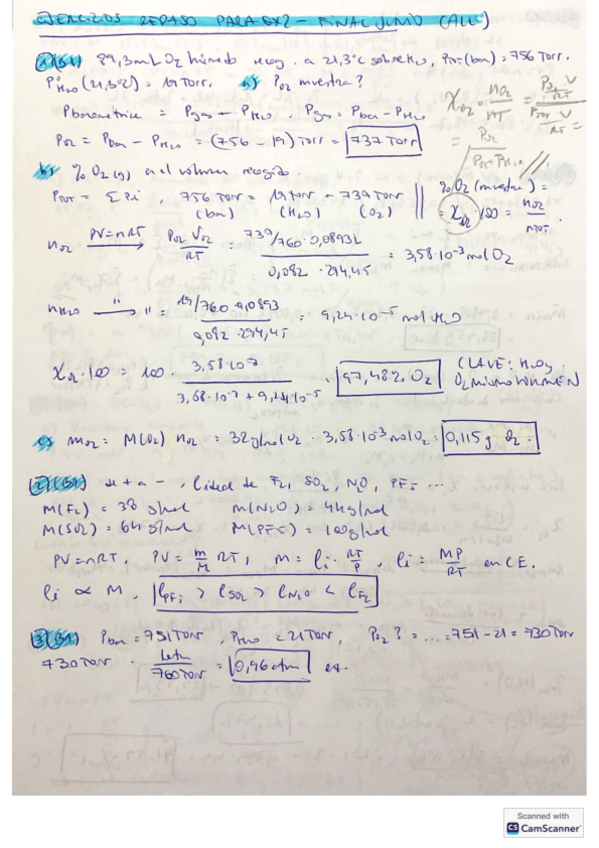 EJERCICIOS REPASO PARA QX2 - FINAL JUNIO (ALE)
① (S1) 89,3 mL O2 húmedo recog. a 21,3ºC sobre H2O, PT (bar) = 756 Torr.
PºH2O (21,3ºC) = 19 Torr. a) PO2 muestra?
χO2 = nO2/nT = (PO2 V/RT)/(PTOT V/RT) =
= PO2/(PO2+PH2O)
Pbarométrica = Pgas + PH2O, Pgas = Pbar - PH2O
PO2 = Pbar - PH2O = (756 - 19) Torr = 737 Torr
b) % O2 (g) en el volumen recogido
PTOT = Σ Pi, 756 Torr = 19 Torr + 737 Torr
(bar) (H2O) (O2)
% O2 (muestra) =
= χO2 · 100 = nO2/nTOT.
nO2 PV=nRT → PO2 VO2/RT = (737/760 · 0,0893L)/(0,082 · 294,45) = 3,58·10-3 mol O2
nH2O " → " = (19/760 · 0,0893)/(0,082 · 294,45) = 9,24·10-5 mol H2O
χO2 · 100 = 100 · 3,58·10-3/(3,58·10-3 + 9,24·10-5) = 97,48% O2
CLAVE: H2O y
O2 MISMO VOLUMEN
c) mO2 = M(O2) nO2 = 32 g/mol O2 · 3,58·10-3 mol O2 = 0,115 g O2.
② (S1) de + a - , densidad de F2, SO2, N2O, PF5 ...
M(F2) = 38 g/mol M(N2O) = 44 g/mol
M(SO2) = 64 g/mol M(PF5) =
PV = nRT, PV = m/M RT, en CE.
∝ M.
③ (S1) Pbar = 751 Torr, PH2O = 21 Torr, PO2? = ... = 751 - 21 = 730 Torr
730 Torr · 1 atm/760 Torr = 0,96 atm
Scanned with
CS CamScanner